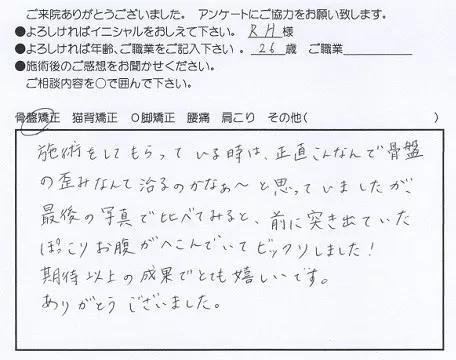 ご来院ありがとうございました。 アンケートにご協力をお願い致します。
●よろしければイニシャルをおしえて下さい。 RH 様
●よろしければ年齢、ご職業をご記入下さい 。 26 歳 ご職業
●施術後のご感想をお聞かせください。
ご相談内容を○で囲んで下さい。
骨盤矯正 猫背矯正 O脚矯正 腰痛 肩こり その他( )
施術をしてもらっている時は、正直こんなんで骨盤
の歪みなんて治るのかなぁ〜と思っていましたが、
最後の写真で比べてみると、前に突き出ていた
ぽっこりお腹がへこんでいてビックリしました!
期待以上の成果でとても嬉しいです。
ありがとうございました。